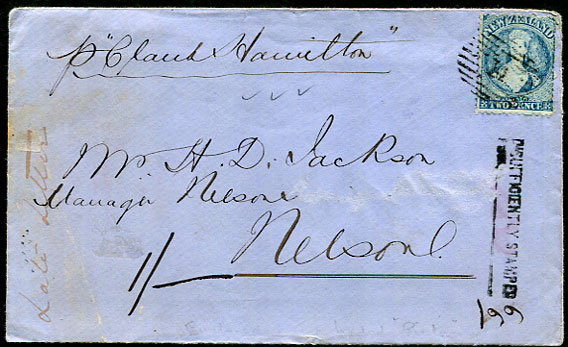 p "Claud Hamilton"
NEW ZEALAND
TWO PENCE
Mr H. D. Jackson
Manager Nelson
Nelson
1/-
INSUFFICIENTLY STAMPED
Late Letter